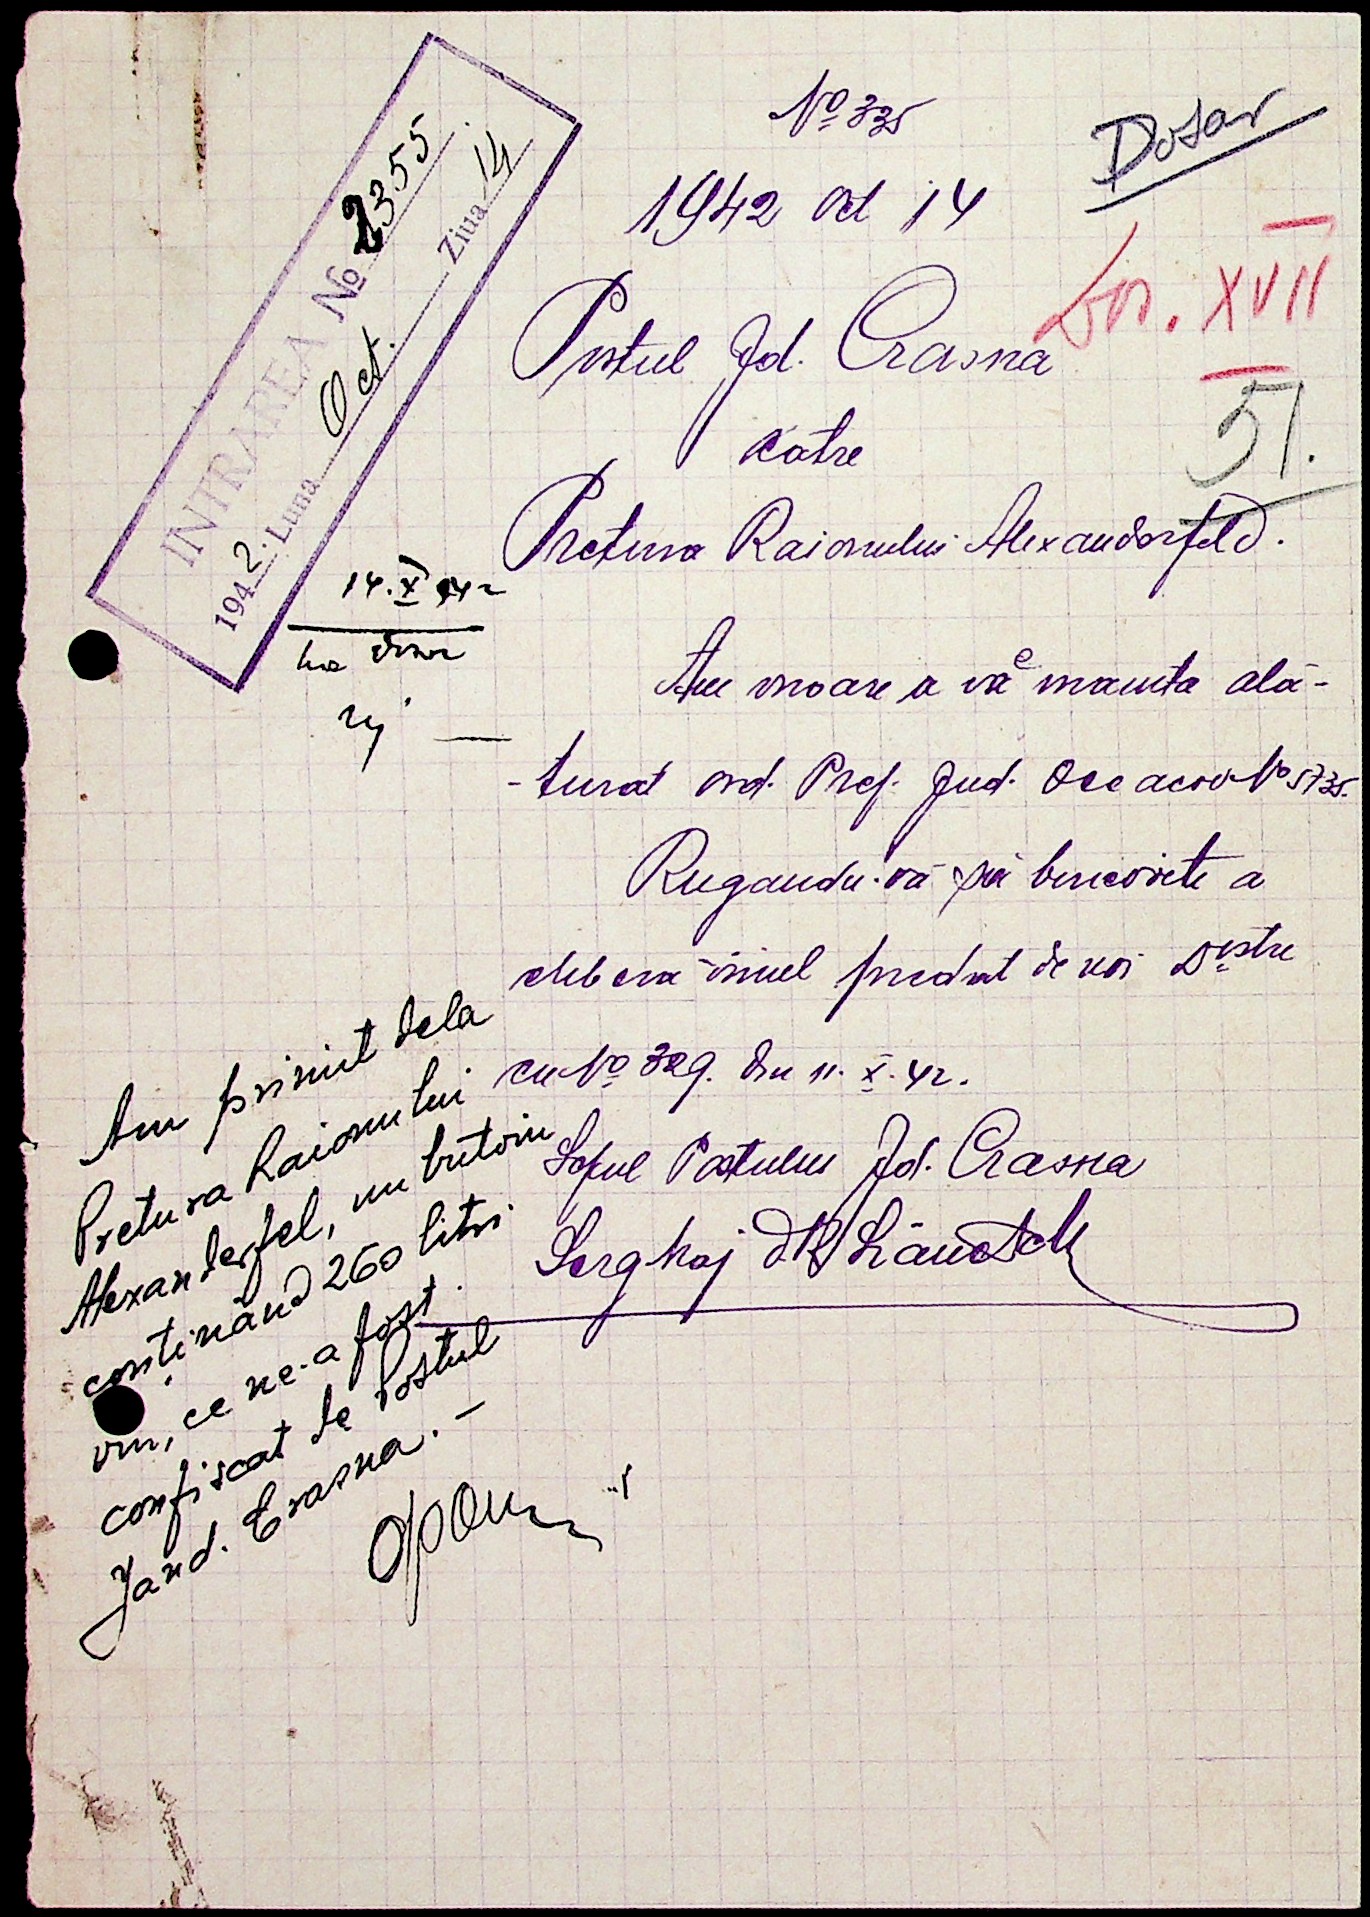 INTRAREA № 2355
1942. Luna Oct. Ziua 14
№ 335
1942 Oct 14
Dosar
Dos. XVII
51.
Postul Jd. Crasna
către
Pretura Raionului Alexandorfeld.
14.X 942
La dosar
Am onoare a vă înainta ală-
-turat ord. Pref. Jud. Oceacov No 5735.
Rugandu-vă să binevoiti a
elibera vinul predat de noi Dvstre
cu No 329. din 11.X.42.
Seful Postului Jd. Crasna
Am primit dela
Pretura Raionului
Alexanderfel, un butoiu
conținând 260 litri
vin, ce ne-a fost
confiscat de Postul
Jand. Crasna. –